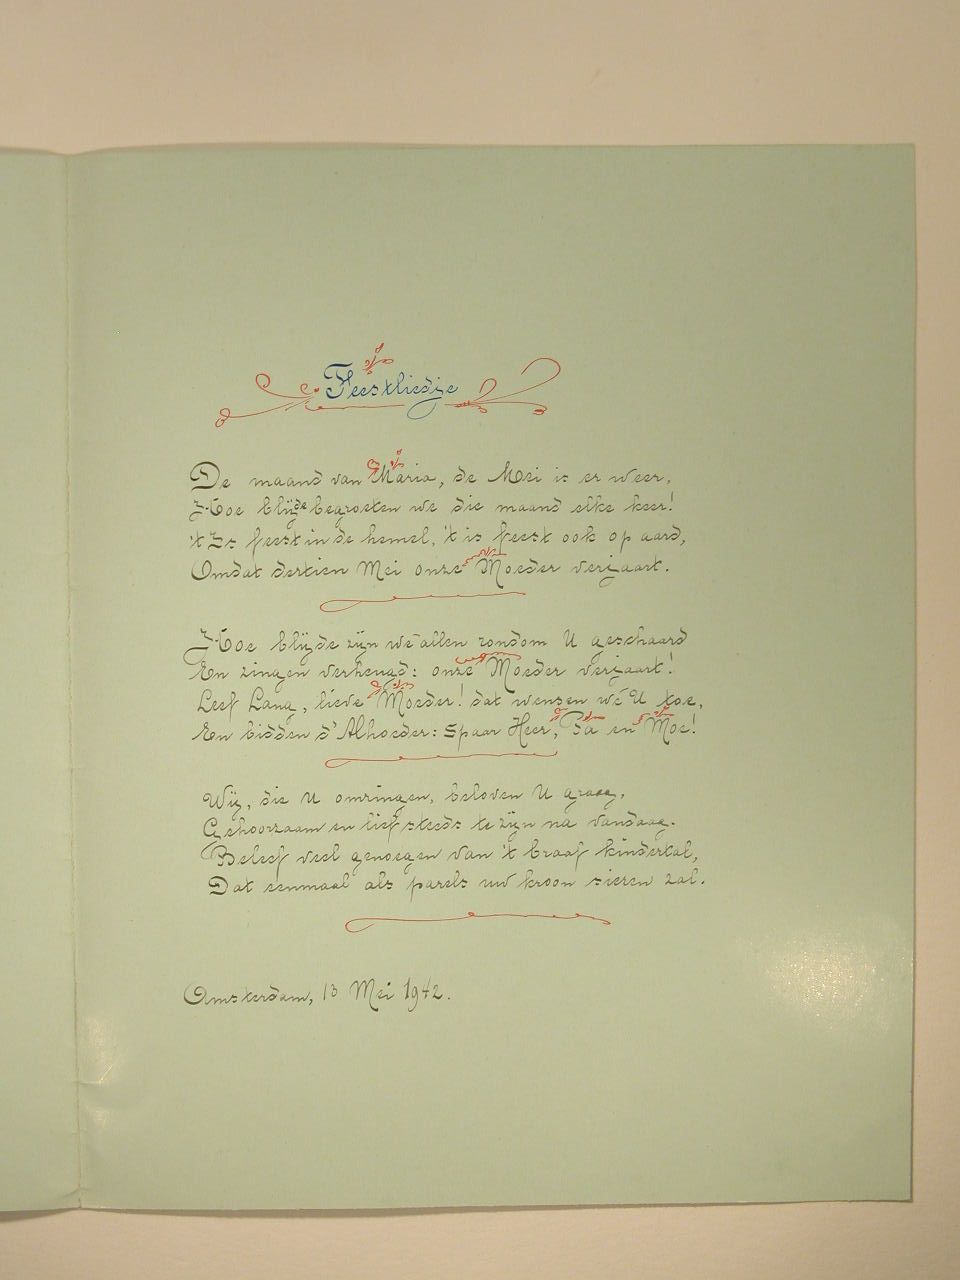 Feestliedje
De maand van Maria, de Mei is er weer,
Hoe blijde begroeten we die maand elke keer!
't Is feest in de hemel, 't is feest ook op aard,
Omdat dertien Mei onze Moeder verjaart.
Hoe blijde zijn we allen rondom U geschaard
En zingen verheugd: onze Moeder verjaart!
Leef Lang, lieve Moeder! dat wensen we U toe,
En bidden d'Alhoeder: Spaar Heer, Pa en Moe!
Wij, die U omringen, beloven U graag,
Gehoorzaam en lief steeds te zijn na vandaag.
Beleef veel genoegen van 't braaf kindertal,
Dat eenmaal als parels uw kroon sieren zal.
Amsterdam, 13 Mei 1942.